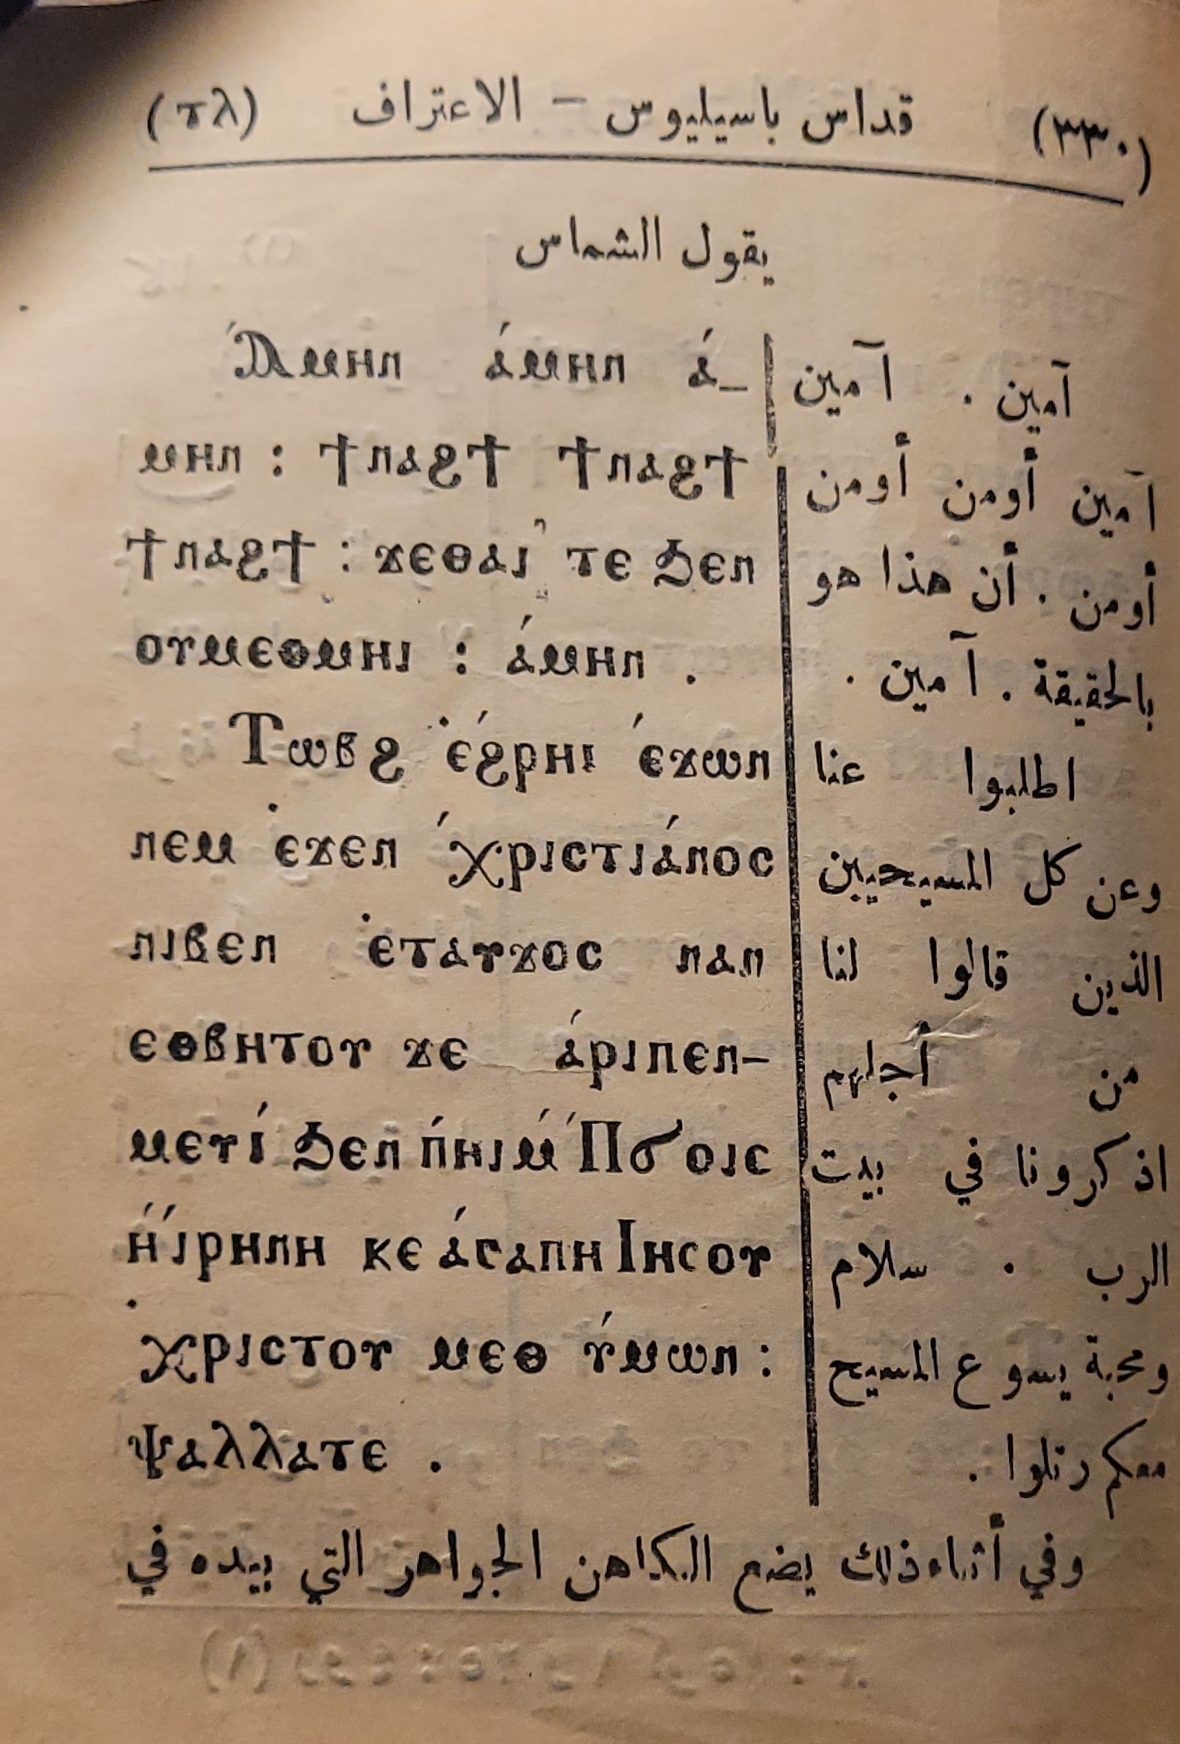 (٣٣٠) قداس باسيليوس – الاعتراف (ⲧⲗ)
يقول الشماس
Ⲁ̀ⲙⲏⲛ ⲁ̀ⲙⲏⲛ ⲁ̀-
ⲙⲏⲛ : ϯⲛⲁϩϯ ϯⲛⲁϩϯ
ϯⲛⲁϩϯ : ϫⲉⲑⲁⲓ ⲧⲉ ϧⲉⲛ
ⲟⲩⲙⲉⲑⲙⲏⲓ : ⲁ̀ⲙⲏⲛ .
Ⲧⲱⲃϩ ⲉ̀ϩⲣⲏⲓ ⲉ̀ϫⲱⲛ
ⲛⲉⲙ ⲉϫⲉⲛ ⲭ̀ⲣⲓⲥⲧⲓⲁ̀ⲛⲟⲥ
ⲛⲓⲃⲉⲛ ⲉ̀ⲧⲁⲩϫⲟⲥ ⲛⲁⲛ
ⲉⲑⲃⲏⲧⲟⲩ ϫⲉ ⲁ̀ⲣⲓⲡⲉⲛ-
ⲙⲉⲩⲓ̀ ϧⲉⲛ ⲡ̀ⲏⲓⲙ̀ Ⲡϭⲟⲓⲥ
ⲏ̀ⲓ̀ⲣⲏⲛⲏ ⲕⲉ ⲁ̀ⲅⲁⲡⲏ Ⲓⲏⲥⲟⲩ
ⲭⲣⲓⲥⲧⲟⲩ ⲙⲉⲑ ⲩ̀ⲙⲱⲛ :
ⲯⲁⲗⲗⲁⲧⲉ .
آمين . آمين
آمين أومن أومن
أومن . أن هذا هو
بالحقيقة . آمين .
اطلبوا عنا
وعن كل المسيحيين
الذين قالوا لنا
من أجلهم
اذكرونا في بيت
الرب . سلام
ومحبة يسوع المسيح
معكم رتلوا .
وفي أثناء ذلك يضع الكاهن الجواهر التي بيده في